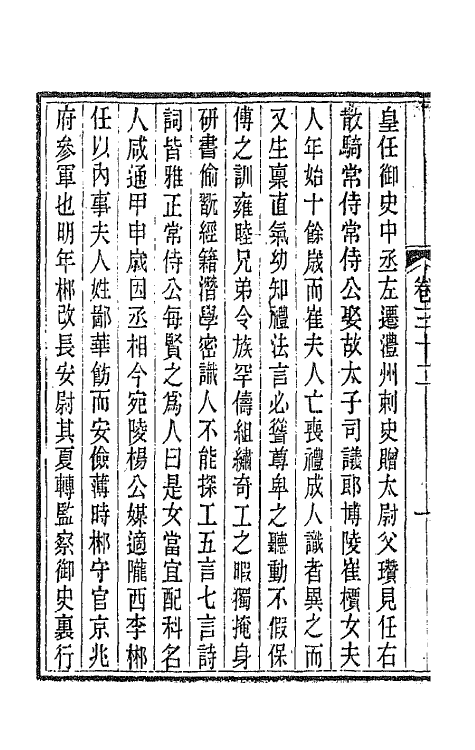 皇任御史中丞左遷澧州刺史贈太尉父瓚見任右
散騎常侍常侍公娶故太子司議郎博陵崔櫝女夫
人年始十餘歲而崔夫人亡喪禮成人識者異之而
又生稟直氣幼知禮法言必聳尊卑之聽動不假保
傅之訓雍睦兄弟令族罕儔組繡奇工之暇獨掩身
研書偷翫經籍潛學密識人不能探工五言七言詩
詞皆雅正常侍公每賢之為人曰是女當宜配科名
人咸通甲申歲因丞相今宛陵楊公媒適隴西李郴
任以內事夫人姓鄙華飾而安儉薄時郴守官京兆
府參軍也明年郴改長安尉其夏轉監察御史裏行
卷三十二